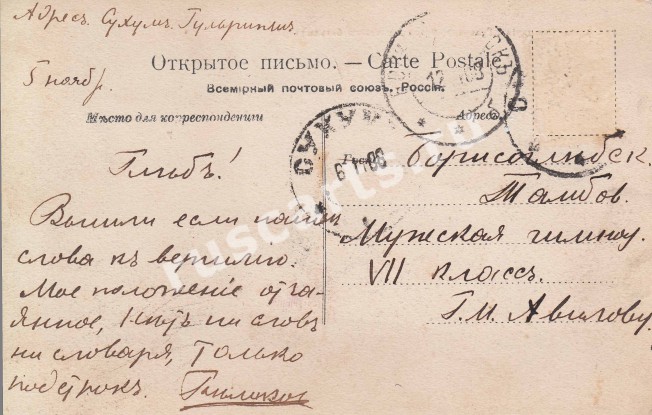 Адресъ Сухумъ. Гульрипшъ
5 ноябр.
Открытое письмо. — Carte Postale
Всемірный почтовый союзъ. Россія.
Мѣсто для корреспонденціи
Адресъ
СУХУМ
Глѣбъ!
Вышли если
слова къ вергилію.
Мое положеніе отча-
янное, нѣтъ ни словъ
ни словаря, только
подстрокъ.
Борисоглѣбск.
Тамбов.
Мужская гимназ.
VII классъ.
Г. М.
ruscarts.ru